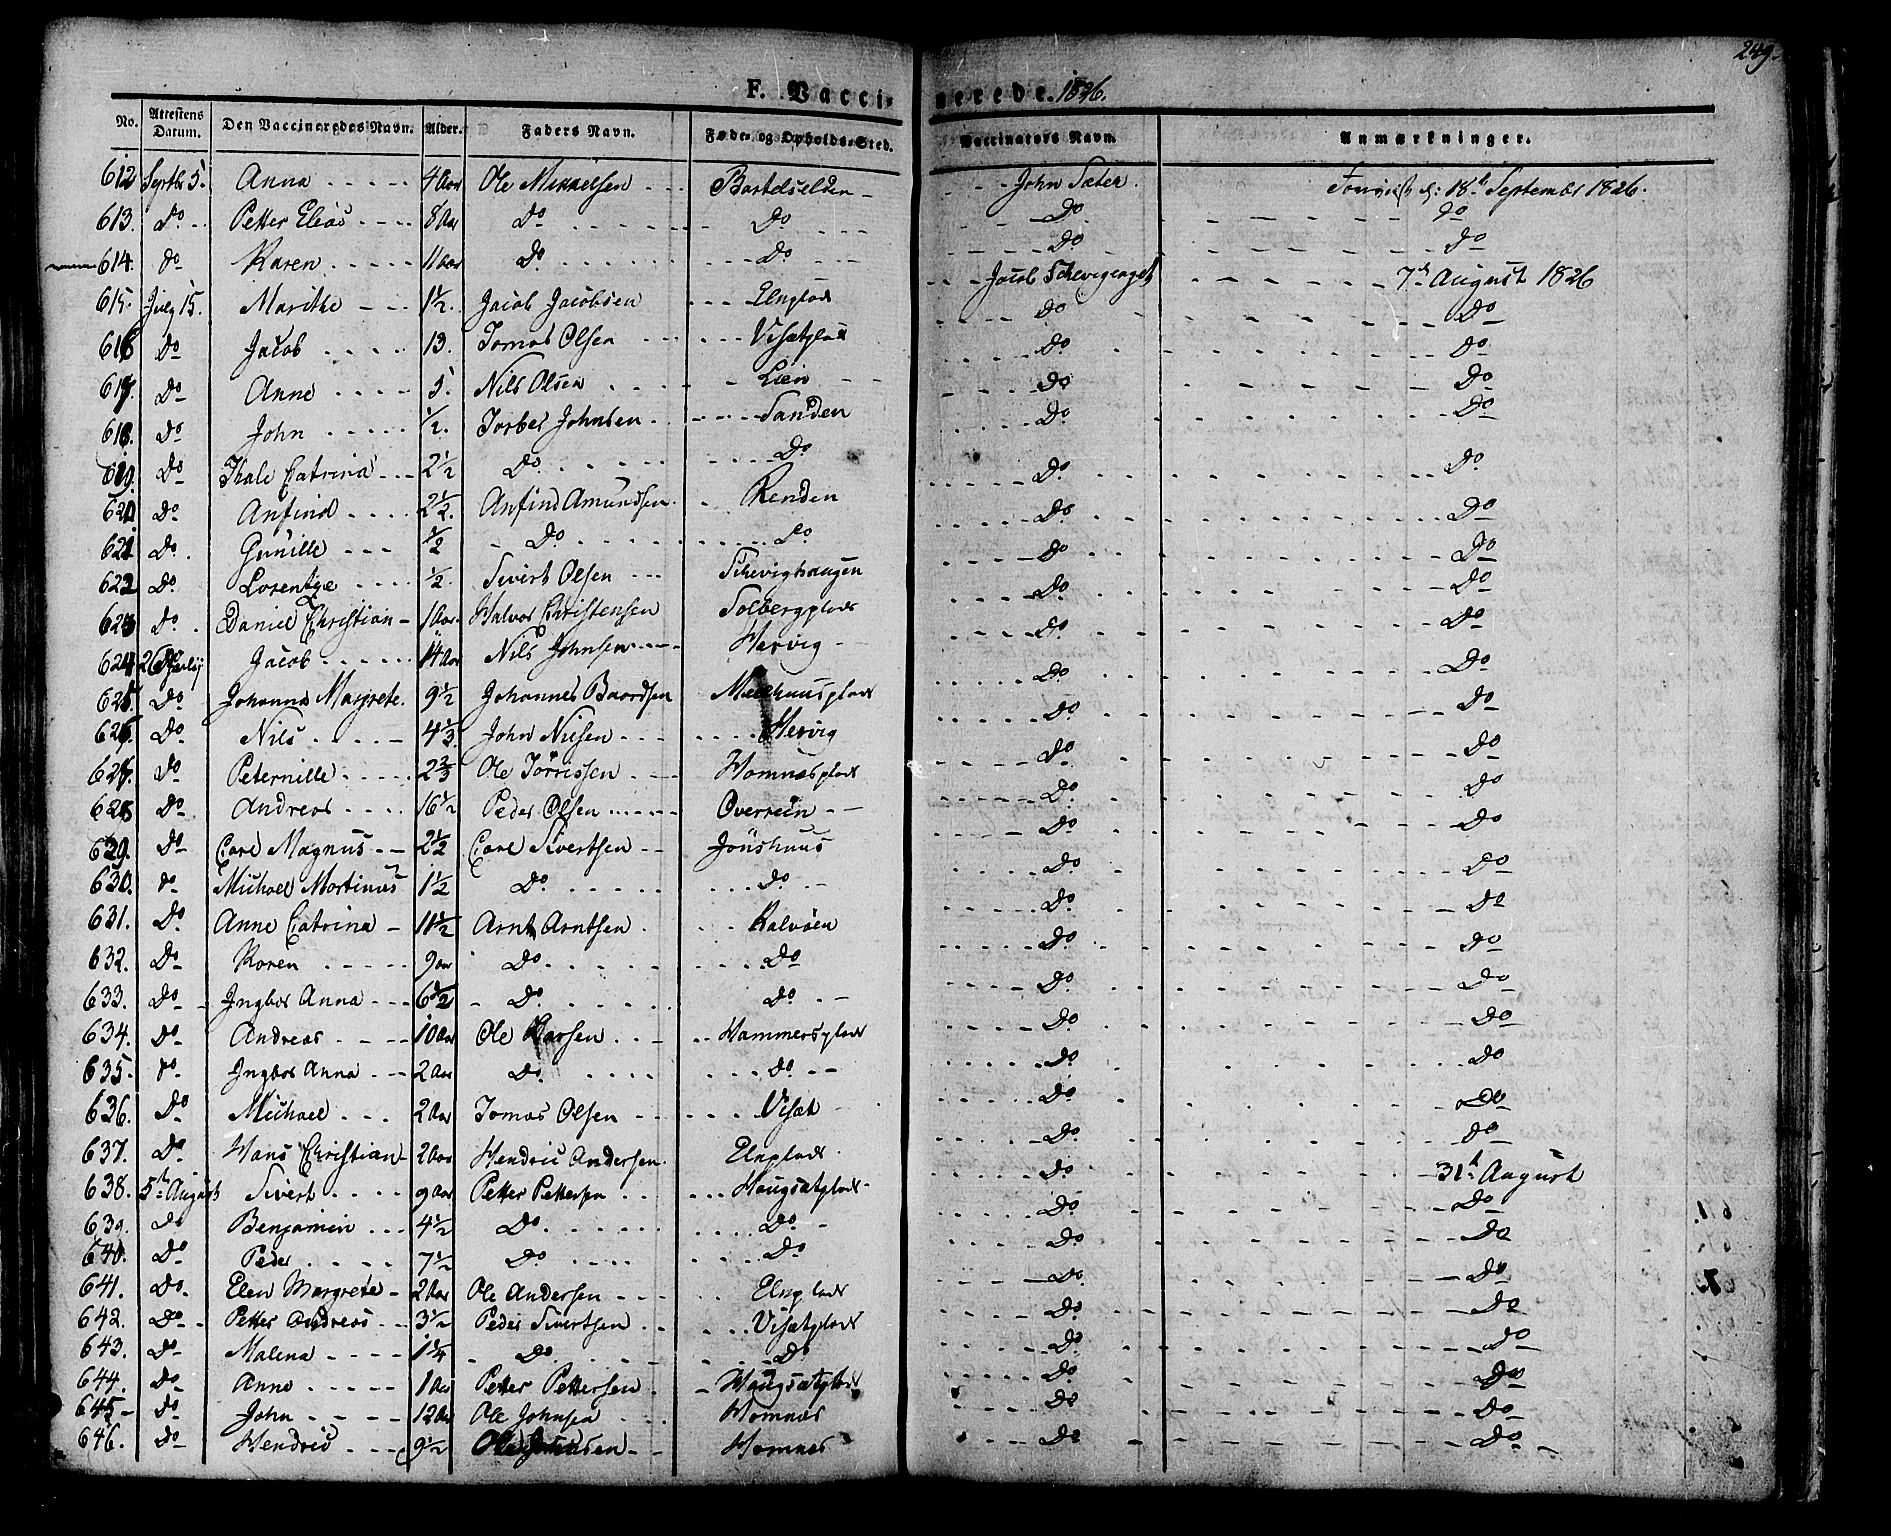 249.
F. Vaccinerede. 1826.
No. Attestens Datum. Den Vaccineredes Navn. Alder. Faders Navn. Føde- og Opholds-Sted. Vaccinators Navn. Anmærkninger.
612 Septbr 5. Anna 4 Aar Ole Mikkelsen John Sæter 18de September 1826.
613. Do Petter Elias 8 Aar Do Do Do Do
614. Do Karen 11 Aar Do Do Do Do
615. July 15. Marithe 1½. Jacob Jacobsen Elnplads Jacob 7de August 1826
616 Do Jacob 13. Tomas Olsen Visetplads Do Do
617. Do Anne 5. Nils Olsen Lien Do Do
618. Do John ½. Torber Johnsen Sanden Do Do
619. Do Thale Catrina 2½ Do Do Do Do
620 Do Anfind 2½. Anfind Amundsen Renden Do Do
621 Do Gunille ½ Do Do Do Do
622 Do Lorentze ½. Sivert Olsen Schevighaugen Do Do
623 Do Daniel Christian 1 Aar Halvor Christensen Solbergplads Do Do
624 26de July Jacob 14 Aar Nils Johnsen Hervig Do Do
625 Do Johanna Margrete 9½ Johannes Baardsen Melhuusplads Do Do
626. Do Nils 4⅓ John Nilsen Hervig Do Do
627. Do Peternille 2⅔ Ole Tørrissen Homnesplads Do Do
628 Do Andreas 16½ Peder Olsen Overrein Do Do
629. Do Carl Magnus 2½ Carl Sivertsen Jønshuus Do Do
630. Do Michael Martinus 1½ Do Do Do Do
631. Do Anne Catrina 11½ Arnt Arntsen Kalvøen Do Do
632. Do Karen 9 Aar Do Do Do Do
633. Do Ingbor Anna 6½ Do Do Do Do
634. Do Andreas 10 Aar Ole Larsen Hammersplads Do Do
635. Do Ingbor Anna 2 Aar Do Do Do Do
636. Do Michael 2 Aar Tomas Olsen Viset Do Do
637. Do Hans Christian 2 Aar Hendric Andersen Elnplads Do Do
638. 5te August Sivert 9 Aar Petter Pettersen Haugsætplads Do 31te August
639. Do Benjamin 4½ Do Do Do Do
640. Do Peder 7½ Do Do Do Do
641. Do Elen Margrete 2 Aar Ole Andersen Elnplads Do Do
642. Do Petter Andreas 3½ Peder Sivertsen Visætplads Do Do
643. Do Malena 1¼ Do Do Do Do
644. Do Anne 1 Aar Petter Pettersen Haugsætplads Do Do
645 Do John 12 Aar Ole Johnsen Homnes Do Do
646. Do Hendric 9½ Ole Johnsen Homnes Do Do